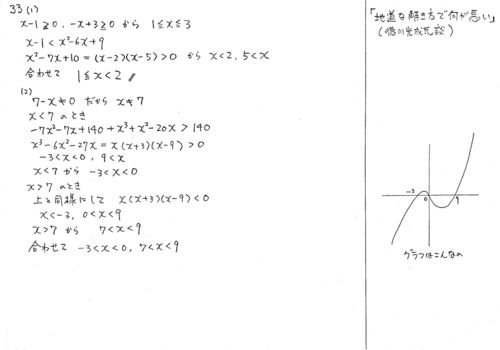 33 (1)
x-1≧0, -x+3≧0 から 1≦x≦3
x-1<x²-6x+9
x²-7x+10=(x-2)(x-5)>0 から x<2, 5<x
合わせて 1≦x<2 //
(2)
7-x≠0 だから x≠7
x<7 のとき
-7x²-7x+140+x³+x²-20x>140
x³-6x²-27x=x(x+3)(x-9)>0
-3<x<0, 9<x
x<7 から -3<x<0
x>7 のとき
上と同様にして x(x+3)(x-9)<0
x<-3, 0<x<9
x>7 から 7<x<9
合わせて -3<x<0, 7<x<9
「地道な解き方で何が悪い」
-3
0
9
グラフはこんなの